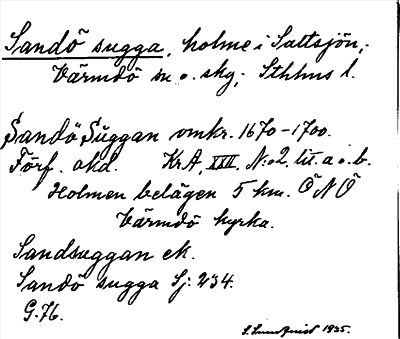 Sandö sugga, holme i Saltsjön,
Värmdö sn o. skg; Sthlms l.
Sandö Suggan omkr. 1670-1700.
Förf. okd. KrA, XXII, N:o 2, lit. a o. b.
Holmen belägen 5 km. ÖNÖ
Värmdö kyrka.
Sandsuggan ek.
Sandö sugga Sj: 234.
G. 76.
1935.